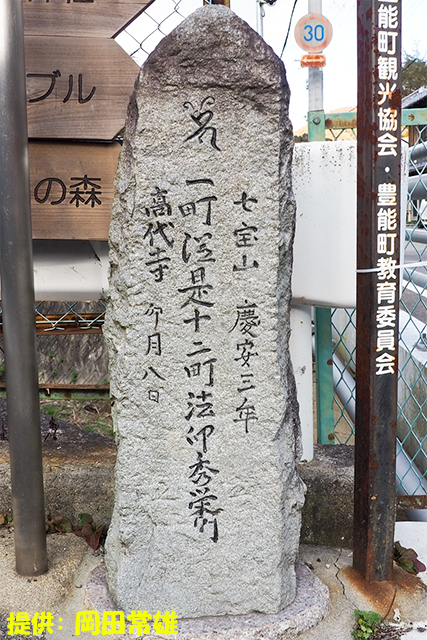 七宝山 慶安三年
一町従是十二町法印秀栄
高代寺 卯月八日
ブル
の森
30
豊能町観光協会・豊能町教育委員会
提供: 岡田常雄